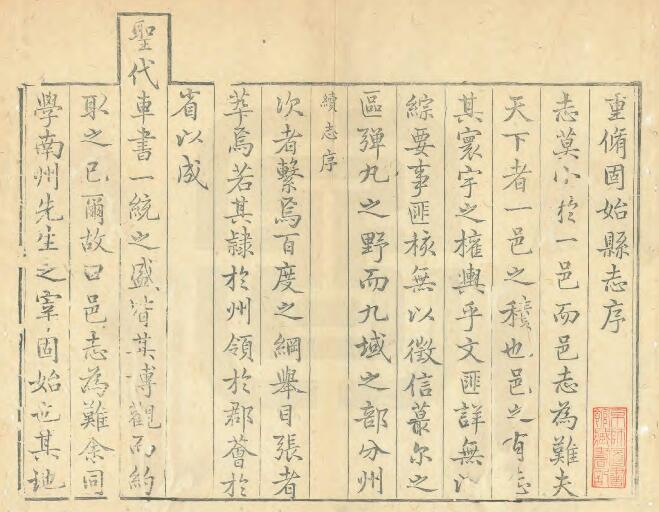 重脩固始縣志序
志莫小於一邑而邑志為難夫
天下者一邑之積也邑之有志
其寰宇之權輿乎文匪詳無以
綜要事匪核無以徵信蕞尔之
區弹丸之野而九域之部分州
續志序
次者繫焉百度之綱舉目張者
萃焉若其隸於州領於郡薈於
省以成
聖代車書一統之盛皆其博觀而約
取之已爾故曰邑志為難余同
學南州先生之宰固始也其地